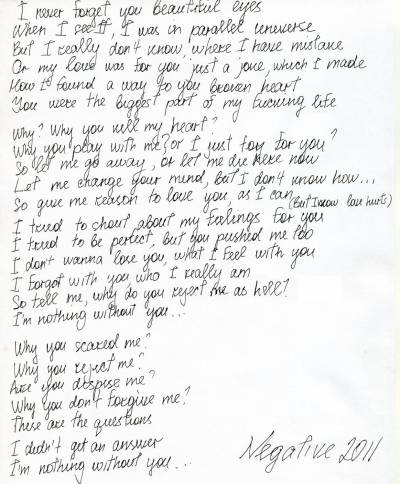 I never forget you beautiful eyes
When I see it, I was in parallel uneverse
But I really don't know, where I have mistake
Or my love was for you just a joke, which I made
How I found a way to you broken heart
You were the biggest part of my fucking life
Why? Why you kill my heart?
Why you play with me? or I just toy for you?
So let me go away, or let me die here now
Let me change your mind, but I don't know how...
So give me reason to love you, as I can (But I know love hurts)
I tried to shout about my feelings for you
I tried to be perfect, but you pushed me too
I don't wanna lose you, what I feel with you
I forgot with you, who I really am
So tell me, why do you reject me as hell?
I'm nothing without you...
Why you scared me?
Why you reject me?
Are you dispise me?
Why you don't forgive me?
These are the questions
I didn't get an answer
I'm nothing without you...
Negative 2011